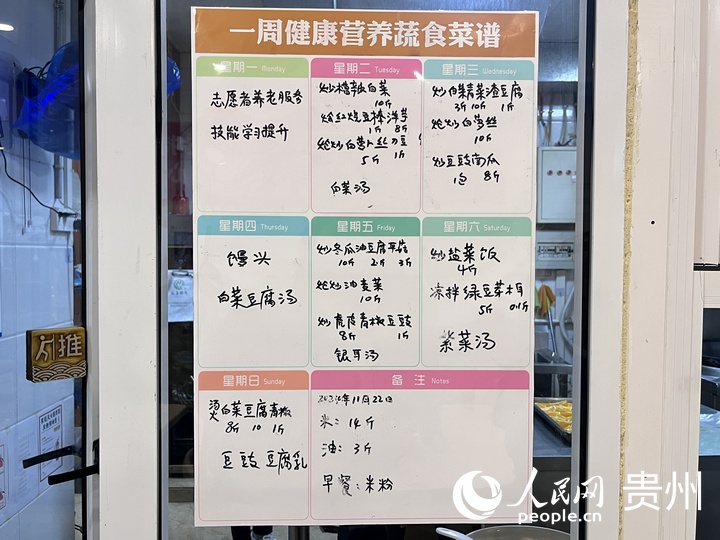 一周健康营养蔬食菜谱
星期一 Monday
志愿者养老服务
技能学习提升
星期二 Tuesday
炒糟辣白菜
10斤
烩红烧豆棒洋芋
1斤 8斤
炝炒白萝卜丝刀豆
5斤 1斤
白菜汤
星期三 Wednesday
炒白菜青菜渣豆腐
3斤 10斤 1斤
炝炒白萝丝
10斤
炒豆豉南瓜
1包 8斤
星期四 Thursday
馒头
白菜豆腐汤
星期五 Friday
炒冬瓜油豆腐平菇
10斤 2斤 3斤
炝炒油麦菜
10斤
炒虎皮青椒豆豉
8斤 1斤
银耳汤
星期六 Saturday
炒盐菜饭
4斤
凉拌绿豆芽木耳
5斤 0.1斤
紫菜汤
星期日 Sunday
烫白菜豆腐青椒
8斤 10 1斤
豆豉豆腐乳
备注 Notes
11月22日
米：14斤
油：3斤
早餐：米粉
推
人民网 贵州
people.cn